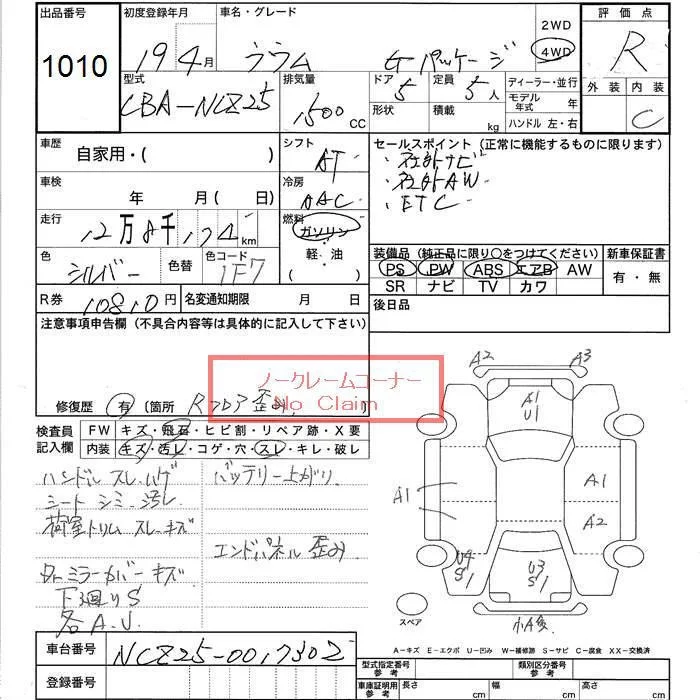 出品番号 初度登録年月 車名・グレード 2WD 評価点
1010 19 4月 ラウム Gパッケージ 4WD R
型式 排気量 ドア 定員 ディーラー・並行 外装 内装
CBA-NCZ25 1500 CC 5 5人 モデル年式 年 C
形状 積載 kg ハンドル 左・右
車歴 自家用・( ) シフト AT
セールスポイント(正常に機能するものに限ります)
・社外ナビ
・社外AW
・ETC
車検 年 月( 日) 冷房 AAC
走行 12万8千174km 燃料 ガソリン
軽・油
色 シルバー 色替 色コード 1F7
装備品(純正品に限り〇をつけてください) 新車保証書
PS PW ABS エアB AW 有・無
SR ナビ TV カワ
R券 10810円 名変通知期限 月 日 後日品
注意事項申告欄(不具合内容等は具体的に記入して下さい)
ノークレームコーナー
No Claim
修復歴 有 (箇所 Rフロア歪み
検査員記入欄 FW キズ・飛石・ヒビ割・リペア跡・X要
内装 キズ・汚レ・コゲ・穴・スレ・キレ・破レ
ハンドル スレ.ハゲ バッテリー上がり
シート シミ.汚レ
荷室トリム スレ.キズ
エンドパネル 歪み
ミラーカバー キズ
下廻りS
各A.U
A2 A3
A1
U1
A1 A1
A2
U4
S1
U3
S1
スペア
A-キズ E-エクボ U-凹み W-補修跡 S-サビ C-腐食 XX-交換済
車台番号 NCZ25-0017302
登録番号
型式指定番号 参考 類別区分番号 参考
車庫証明用 参考 長さ cm 幅 cm 高さ cm